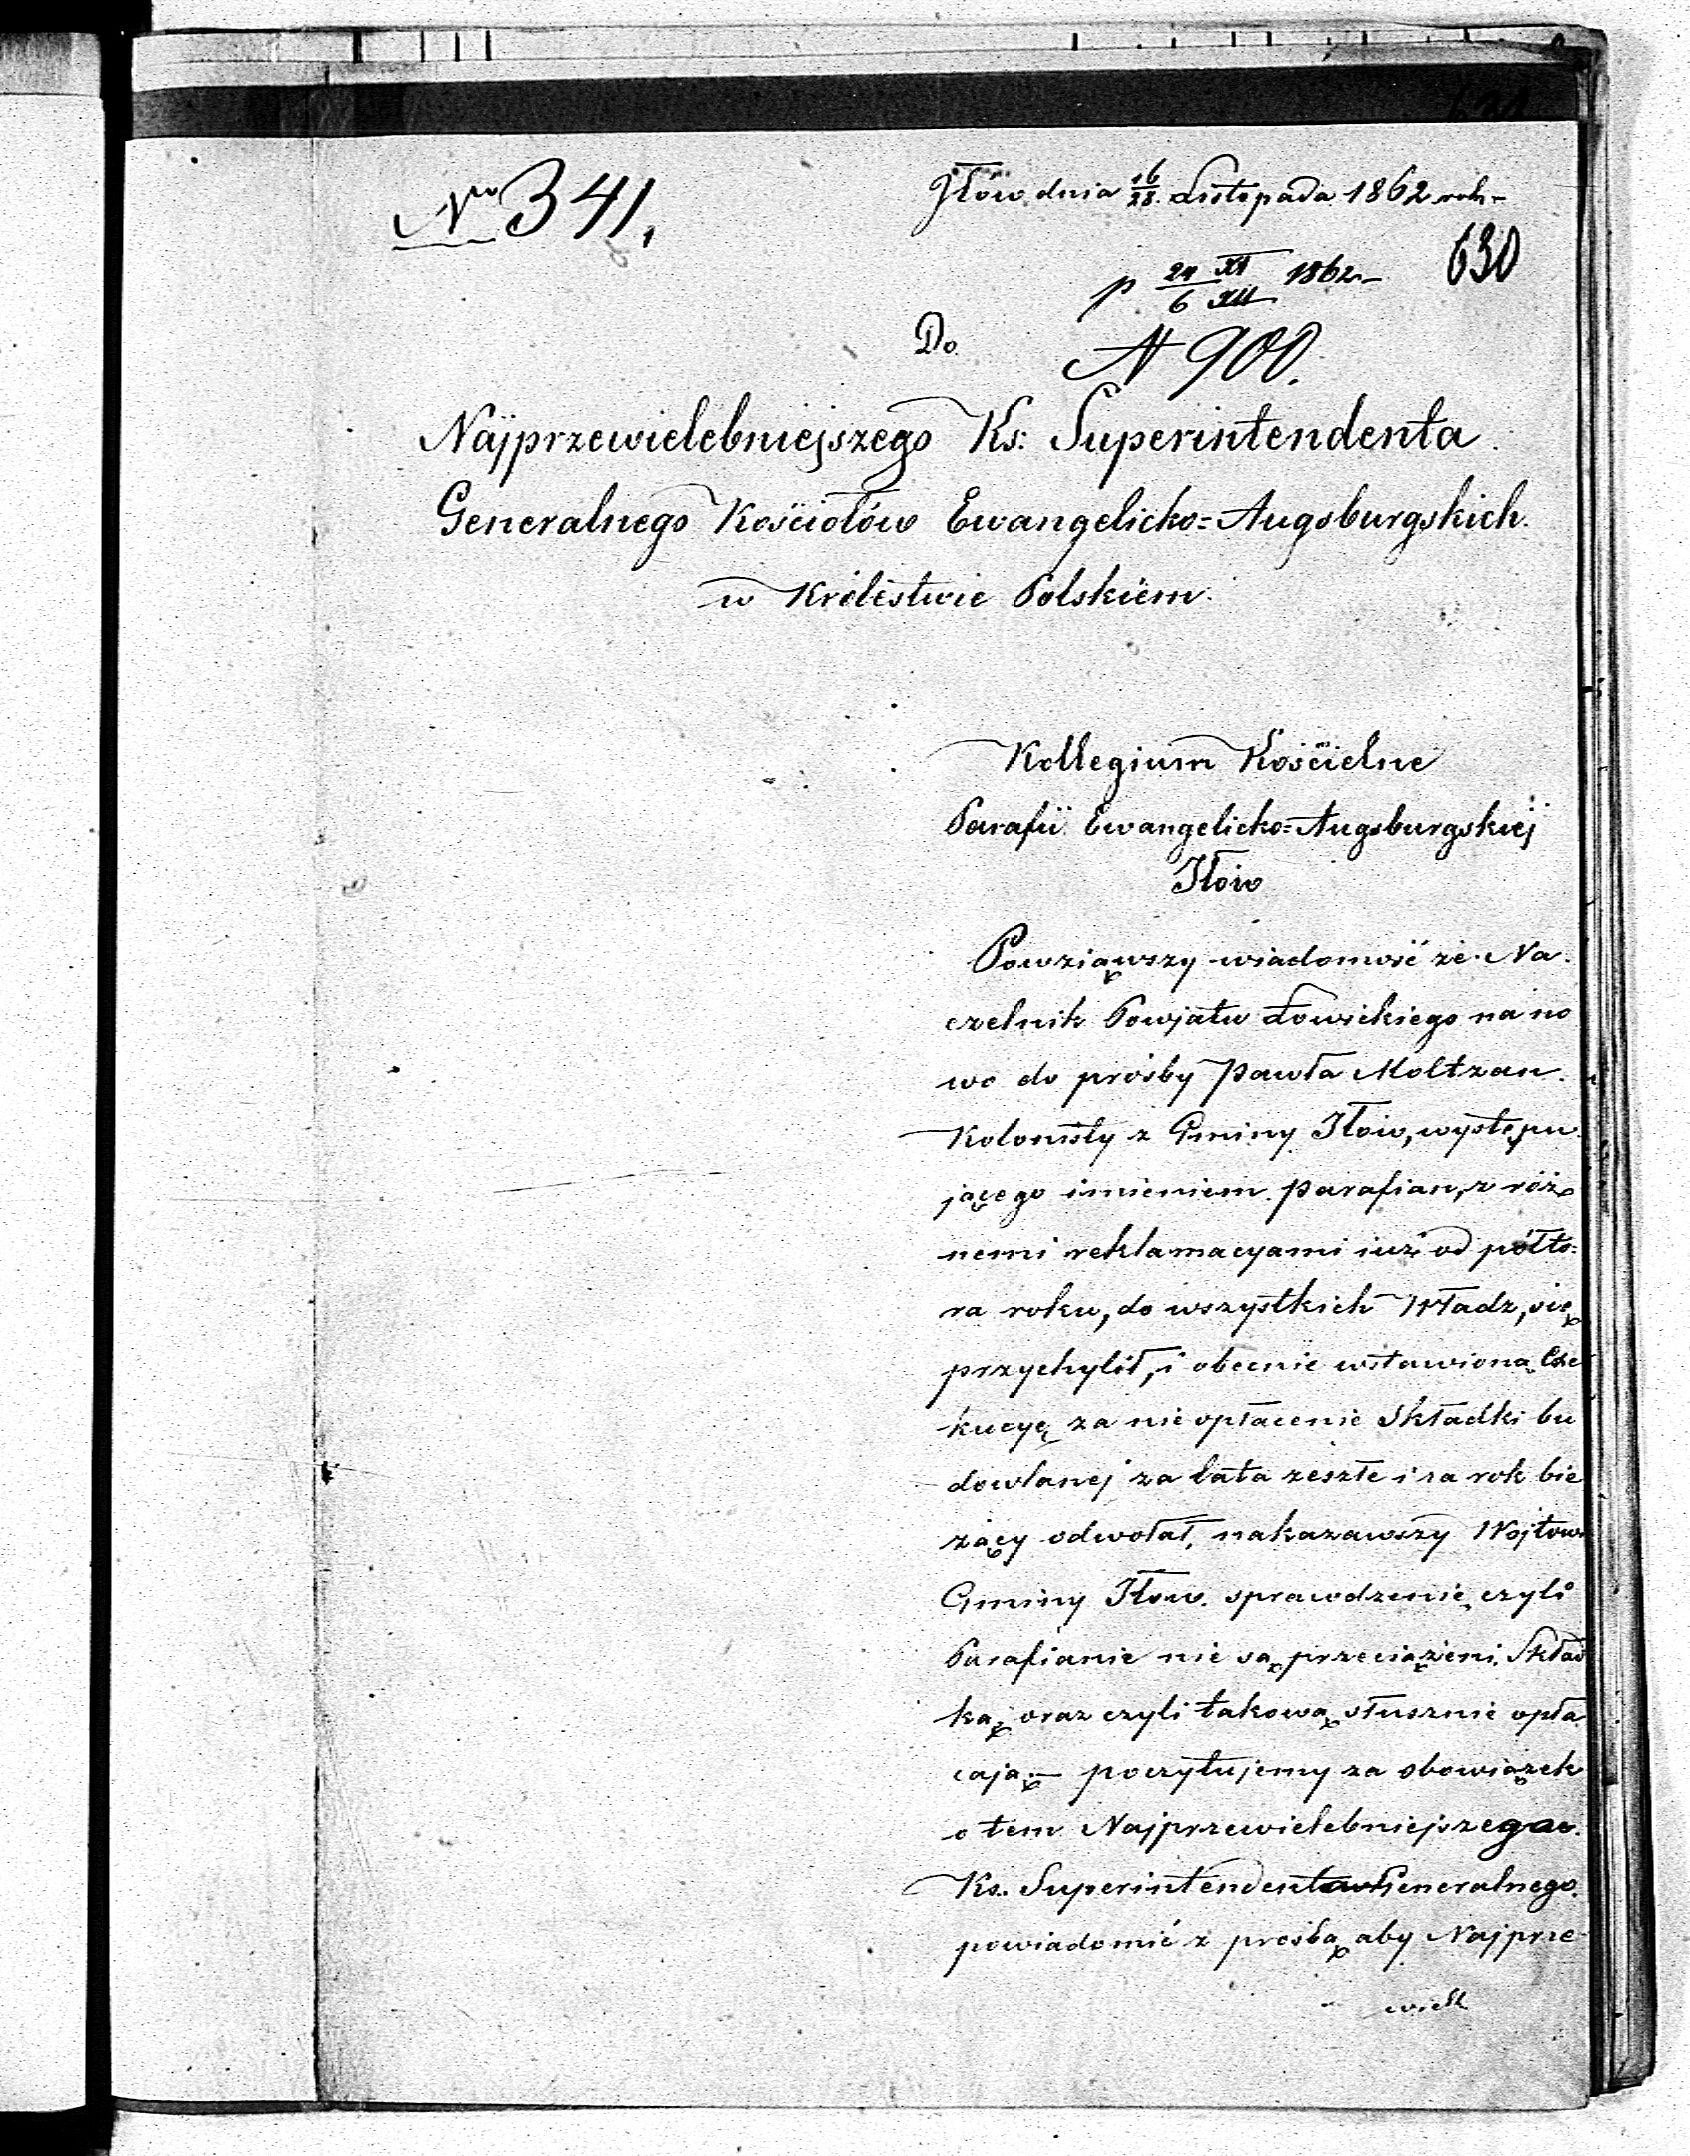 Nro 341.
Iłów dnia 16/28 Listopada 1862 rok
630
p 24 XI / 6 XII 1862
Do
N 900.
Najprzewielebniejszego Ks: Superintendenta
Generalnego Kościołów Ewangelicko=Augsburgskich
w Królestwie Polskiem.
Kollegium Kościelne
Parafii Ewangelicko=Augsburgskiej
Iłów
Powziąwszy wiadomość że Na
czelnik Powjatu Łowickiego na no
wo do prośby Pawła Moltzan
Kolonisty z Gminy Iłów, występu
jącego imieniem parafian, z róż
nemi reklamacyami iuż od półto=
ra roku, do wszystkich Władz, się
przychylił, i obecnie wstawioną Exe
kucyę za nie opłacenie Składki bu
dowlanej za lata zeszłe i za rok bie
żący odwołał, nakazawszy Wójtow
Gminy Iłów sprawdzenie czyli
Parafianie nie są przeciążeni Skład
ką, oraz czyli takową słusznie opła
cają — poczytujemy za obowiązek
o tem Najprzewielebniejszego
Ks. Superintendenta Generalnego
powiadomić z prośbą aby Najprze-
wiele